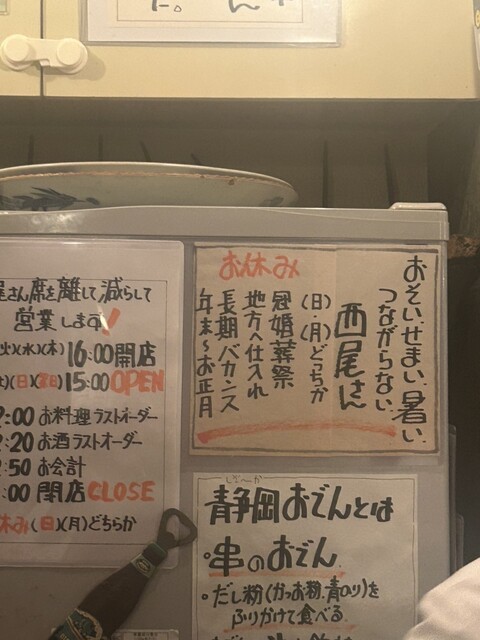 た。
屋さん席を離して、減らして
営業します
(火)(水)(木)16:00開店
(土)(日)(祝日)15:00OPEN
:00 お料理ラストオーダー
:20 お酒ラストオーダー
:50 お会計
:00 閉店CLOSE
休み(日)(月)どちらか
おそい、せまい、暑い、
つながらない、
西尾さん
お休み
(日)・(月)どっちか
冠婚葬祭
地方へ仕入れ
長期バカンス
年末〜お正月
しぞ〜か
静岡おでんとは
・串のおでん
・だし粉(かつお粉、青のり)を
ふりかけて食べる